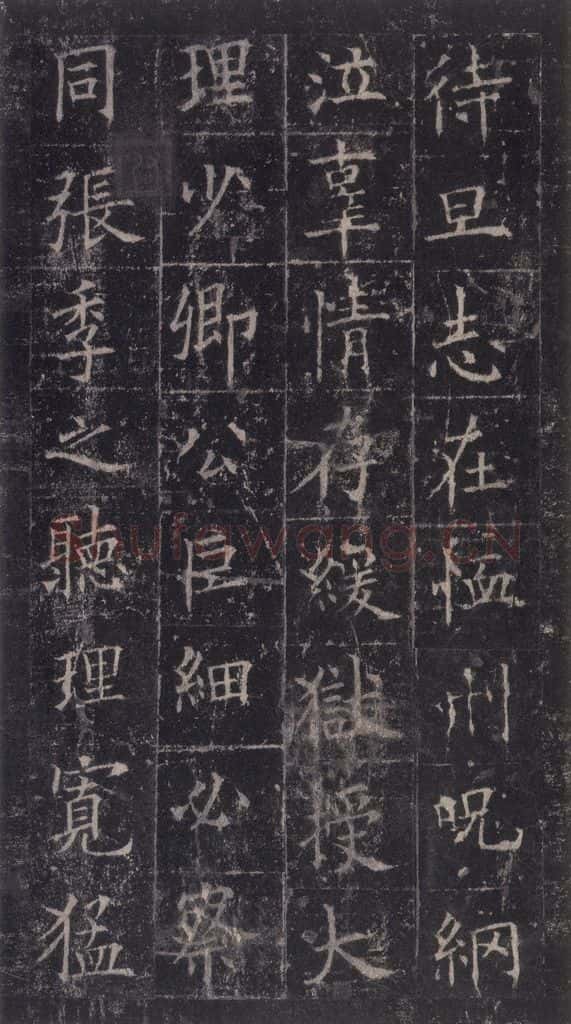 待旦志在恤刑呪網
泣辜情存緩獄授大
理少卿公巨細必察
同張季之聽理寬猛
Shufawang.CN